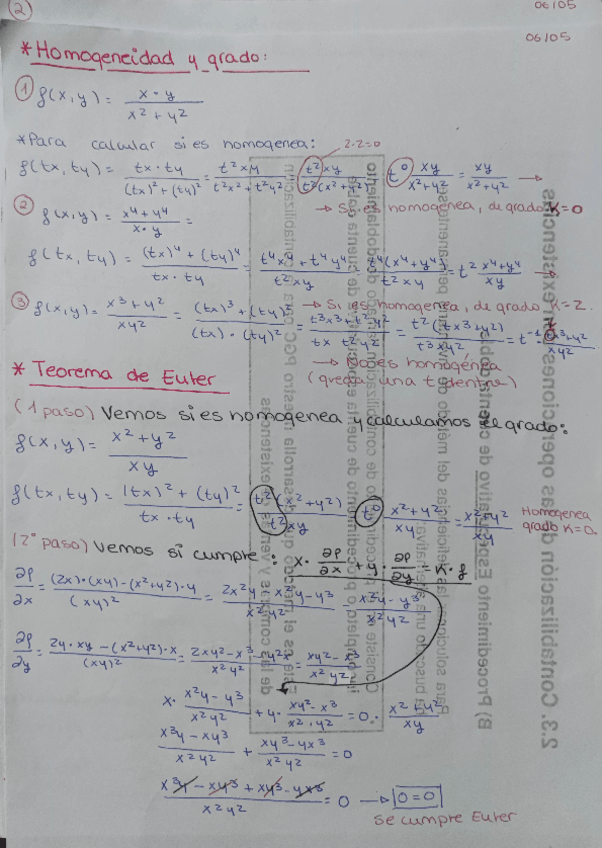 2
06/05
06/05
* Homogeneidad y grado:
① f(x,y) = x·y / x² + y²
*Para calcular si es homogenea:
2-2=0
f(tx, ty) = tx·ty / (tx)² + (ty)² = t²xy / t²x² + t²y² = t²xy / t²(x²+y²) = t⁰ xy / x²+y² = xy / x²+y² →
→ Sí es homogenea, de grado K=0
② f(x,y) = x⁴+y⁴ / x·y =
f(tx, ty) = (tx)⁴ + (ty)⁴ / tx·ty = t⁴x⁴ + t⁴y⁴ / t²xy = t⁴(x⁴+y⁴) / t²xy = t² x⁴+y⁴ / xy →
→ Si es homogenea, de grado K=2.
③ f(x,y) = x³+y² / xy² = (tx)³ + (ty)² / (tx)·(ty)² = t³x³ + t²y² / tx t²y² = t²(tx³+y²) / t³xy² = t⁻¹ tx³+y² / xy²
→ No es homogénea
(queda una t dentro)
* Teorema de Euler
(1 paso) Vemos si es homogenea y calculamos el grado:
f(x,y) = x²+y² / xy
f(tx, ty) = (tx)² + (ty)² / tx·ty = t²(x²+y²) / t²xy = t⁰ x²+y² / xy = x²+y² / xy Homogenea
grado K=0.
(2º paso) Vemos si cumple: x· ∂f/∂x + y· ∂f/∂y = K·f
∂f/∂x = (2x)·(xy)-(x²+y²)·y / (xy)² = 2x²y - x²y-y³ / x²y² = x²y-y³ / x²y²
∂f/∂y = 2y·xy-(x²+y²)·x / (xy)² = 2xy²-x³-y²x / x²y² = xy²-x³ / x²y²
x· x²y-y³ / x²y² + y· xy²-x³ / x²·y² = 0· x²+y² / xy
x³y-xy³ / x²y² + xy³-yx³ / x²y² = 0
x³y-xy³+xy³-yx³ / x²y² = 0 → 0=0
Se cumple Euler
2.3. Contabilización de las operaciones con existencias